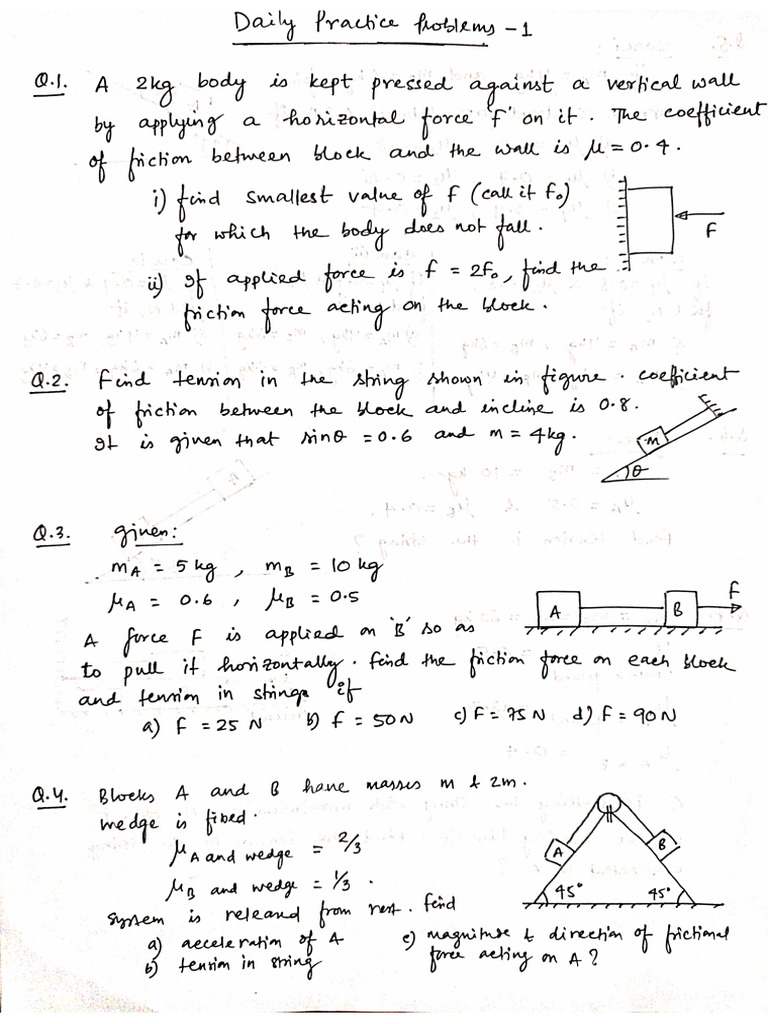 Daily Practice Problems - 1
Q.1. A 2kg body is kept pressed against a vertical wall
by applying a horizontal force 'F' on it. The coefficient
of friction between block and the wall is μ = 0.4.
i) find smallest value of F (call it F₀)
for which the body does not fall.
F
ii) If applied force is F = 2F₀, find the
friction force acting on the block.
Q.2. Find tension in the string shown in figure. coefficient
of friction between the block and incline is 0.8.
It is given that sinθ = 0.6 and m = 4kg.
m
θ
Q.3. given:
mA = 5 kg , mB = 10 kg
μA = 0.6 , μB = 0.5
A B F
A force F is applied on 'B' so as
to pull it horizontally. Find the friction force on each block
and tension in string if
a) F = 25 N b) F = 50 N c) F = 75 N d) F = 90 N
Q.4. Blocks A and B have masses m & 2m.
wedge is fixed.
μ A and wedge = 2/3
μ B and wedge = 1/3 .
A B
45° 45°
system is released from rest. Find
a) acceleration of A
b) tension in string
c) magnitude & direction of frictional
force acting on A?